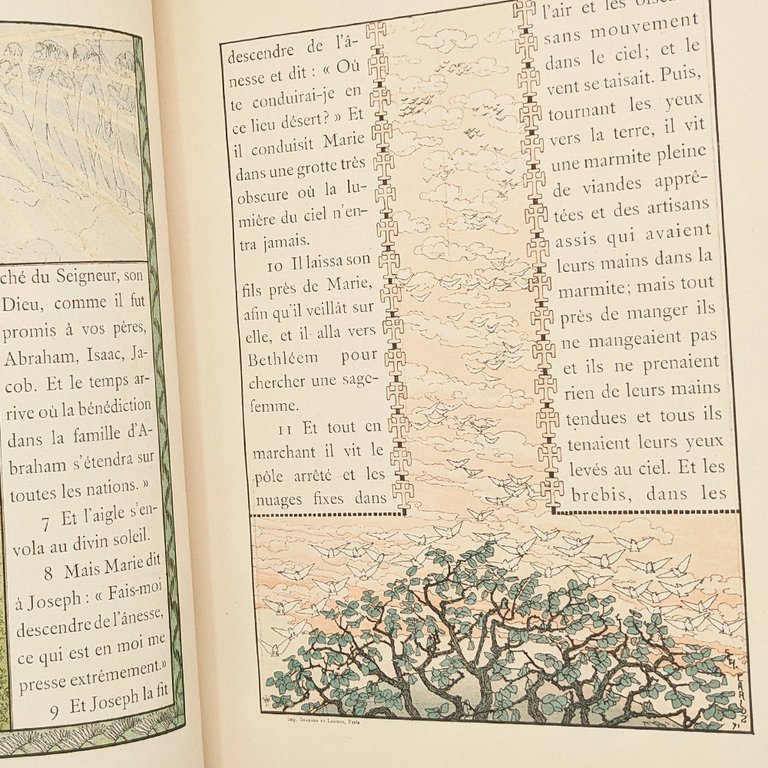 ché du Seigneur, son
Dieu, comme il fut
promis à vos pères,
Abraham, Isaac, Ja-
cob. Et le temps ar-
rive où la bénédiction
dans la famille d'A-
braham s'étendra sur
toutes les nations. »
7 Et l'aigle s'en-
vola au divin soleil.
8 Mais Marie dit
à Joseph : « Fais-moi
descendre de l'ânesse,
ce qui est en moi me
presse extrêmement.»
9 Et Joseph la fit
descendre de l'â-
nesse et dit : « Où
te conduirai-je en
ce lieu désert? » Et
il conduisit Marie
dans une grotte très
obscure où la lu-
mière du ciel n'en-
tra jamais.
10 Il laissa son
fils près de Marie,
afin qu'il veillât sur
elle, et il alla vers
Bethléem pour
chercher une sage-
femme.
11 Et tout en
marchant il vit le
pôle arrêté et les
nuages fixes dans
l'air et les
sans mouvement
dans le ciel; et le
vent se taisait. Puis,
tournant les yeux
vers la terre, il vit
une marmite pleine
de viandes apprê-
tées et des artisans
assis qui avaient
leurs mains dans la
marmite; mais tout
près de manger ils
ne mangeaient pas
et ils ne prenaient
rien de leurs mains
tendues et tous ils
tenaient leurs yeux
levés au ciel. Et les
brebis, dans les
Paris